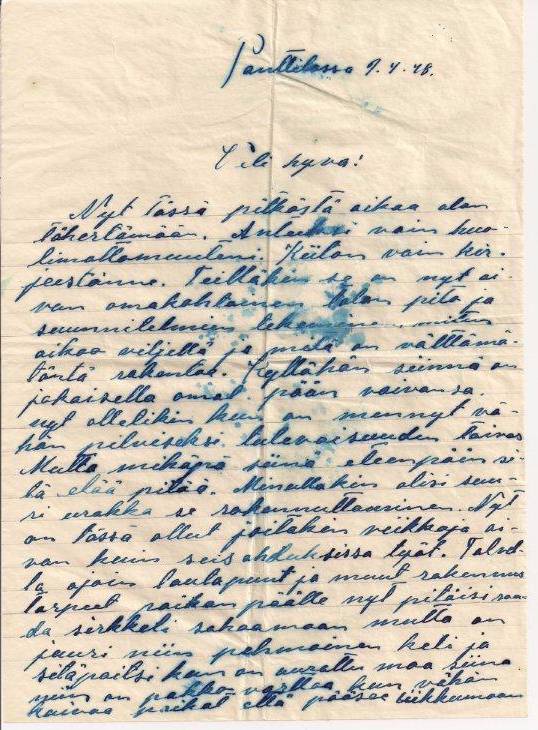 Panttilassa 9.4.48.
Veli hyvä!
Nyt tässä pitkästä aikaa alan
töhertämään. Anteeksi vain huo-
limattomuuteni. Kiitän vain kir-
jeestänne. Teilläkin se on nyt ai-
van omakohtainen talon pito ja
suunnitelmien tekeminen miten
aikoo viljellä ja mitä on välttämä-
töntä rakentaa. Kyllähän siinä on
jokaisella omat pään vaivansa
nyt ollutkin kun on mennyt vä-
hän pilviseksi tulevaisuuden taivas
Mutta mikäpä siinä eteenpäin si-
tä elää pitää. Minullakin olisi suu-
ri urakka se rakennuttaminen. Nyt
on tässä ollut joitakin viikkoja ai-
van kuin seisahduksissa työt. Talvel-
la ajoin taulapuut ja muut rakennus
tarpeet paikan päälle nyt pitäisi saa-
da sirkkeli sahaamaan mutta on
juuri niin pehmoinen keli ja
sitäpaitsi kun on surallu maa siinä
niin on pakko varttoa kun vähän
kaivaa paikat että pääsee liikkumaan